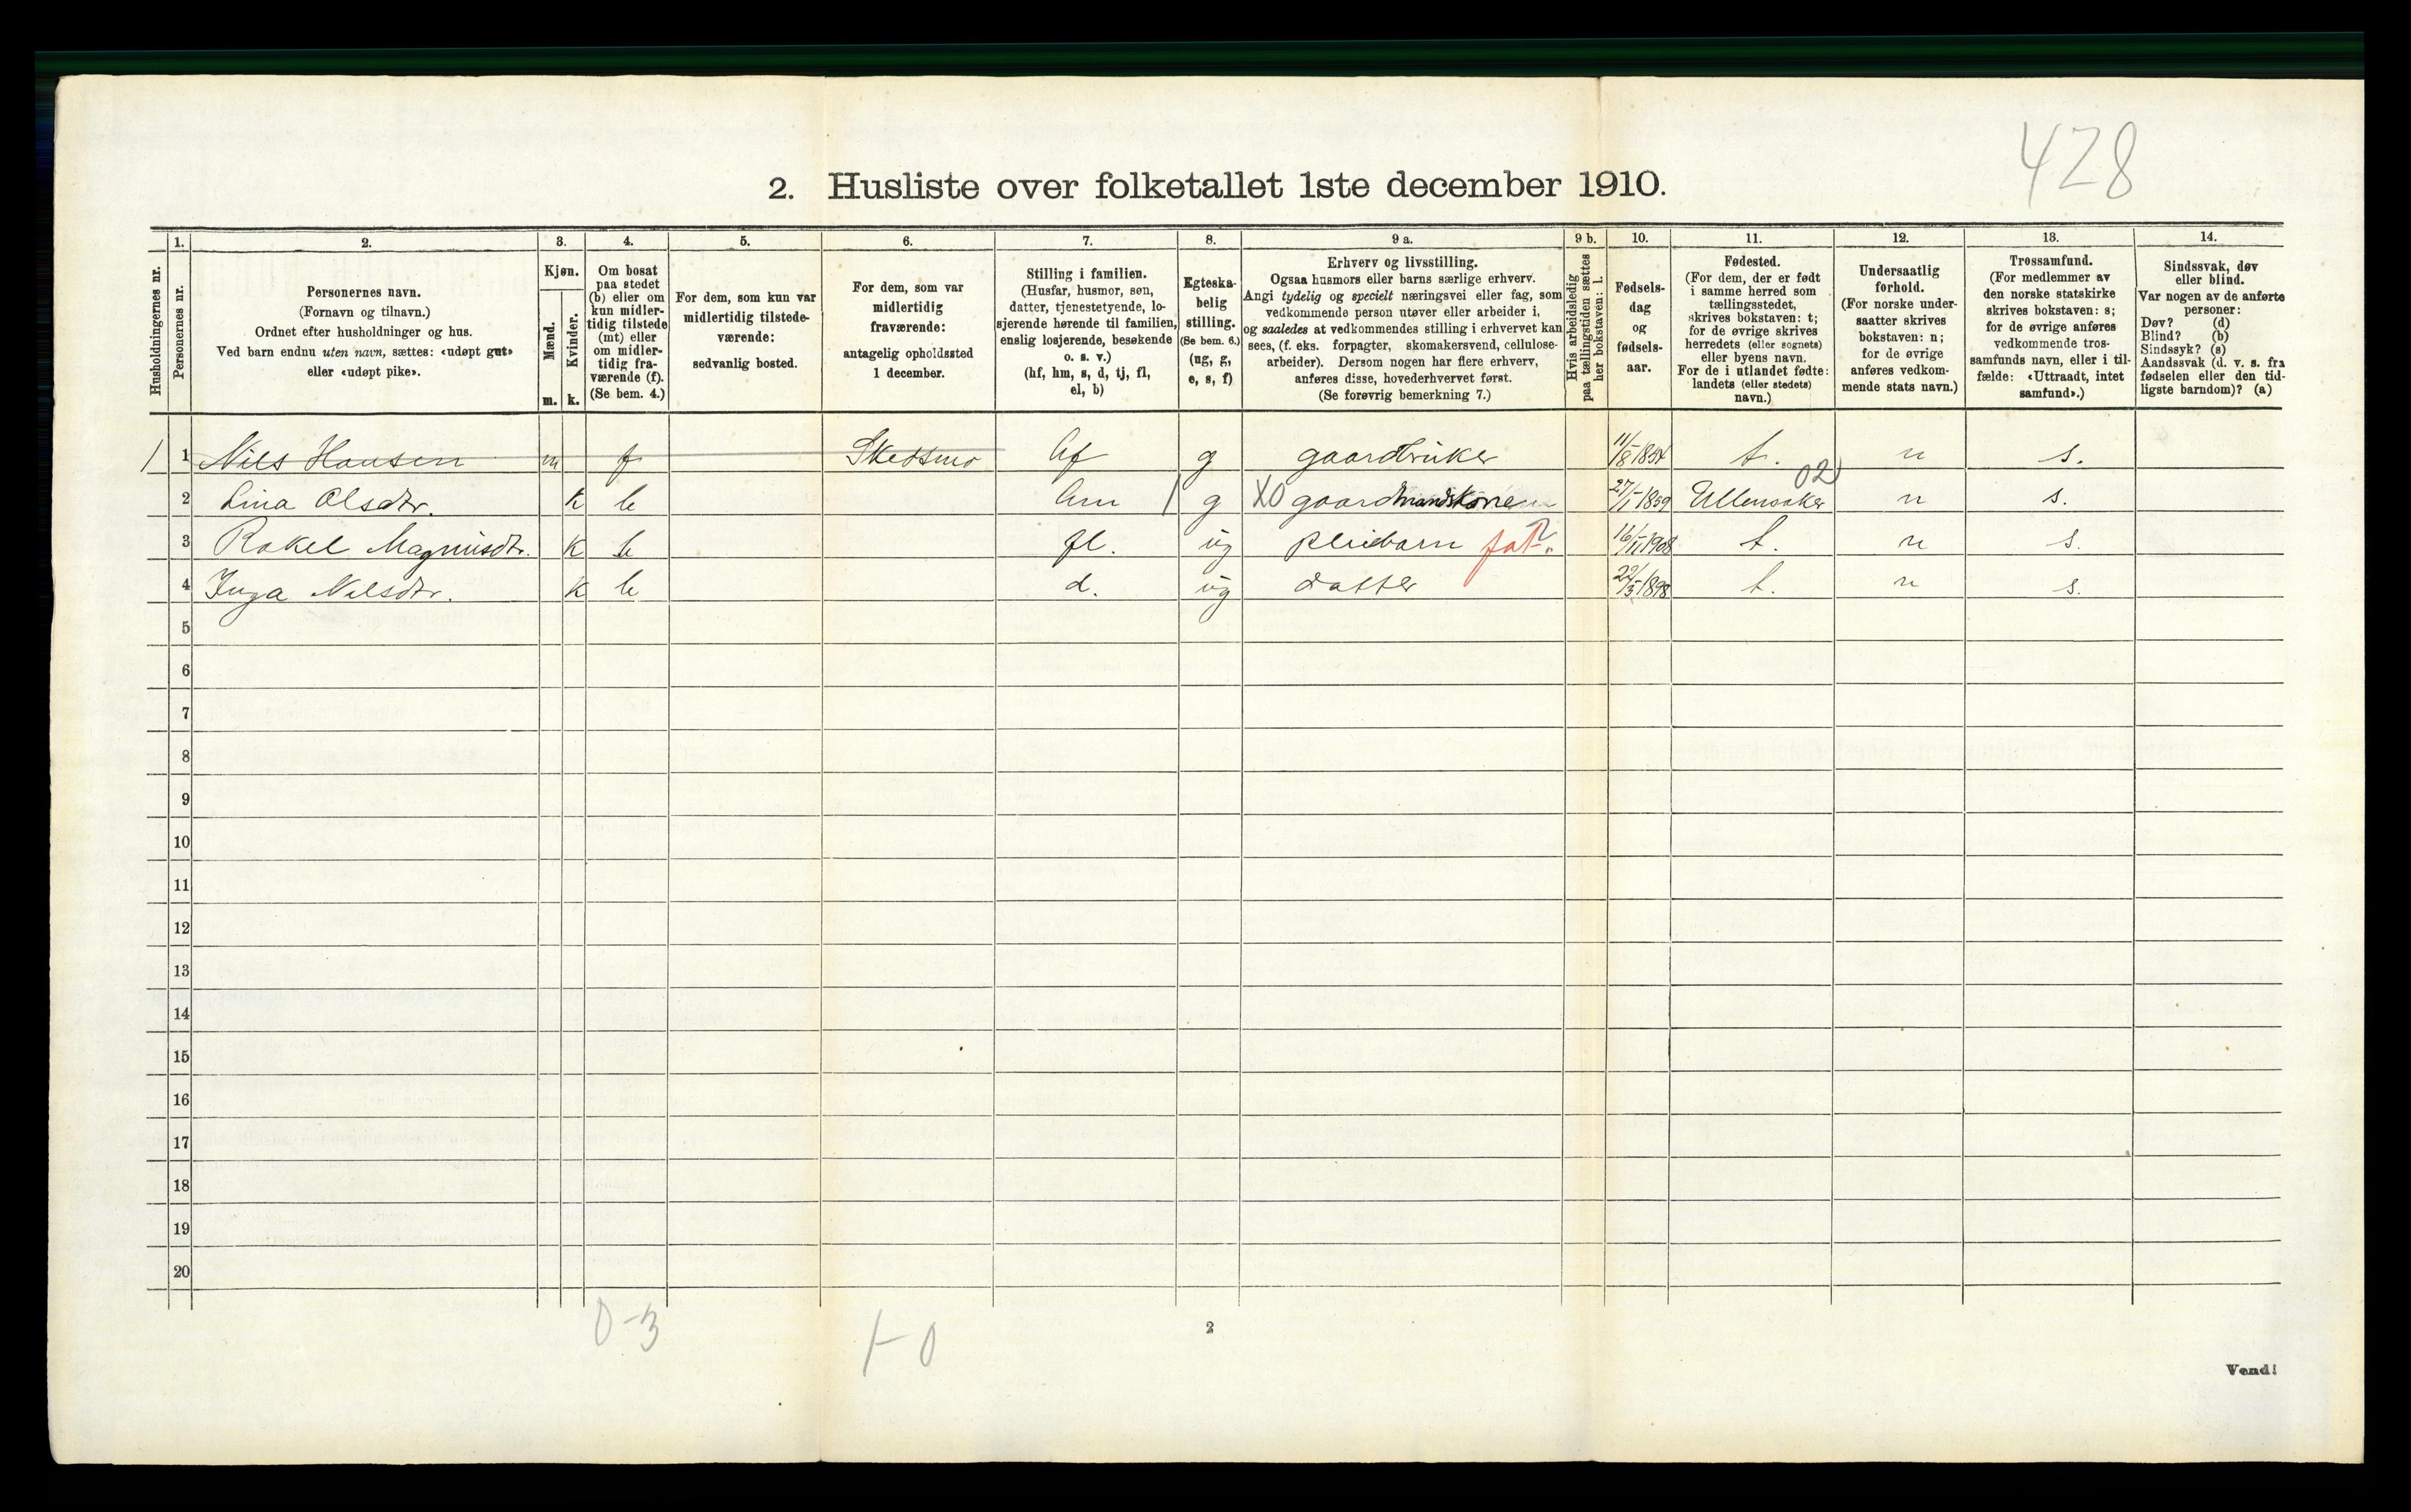 428
2. Husliste over folketallet 1ste december 1910.
Husholdningernes nr.
1.
Personernes nr.
2.
Personernes navn.
(Fornavn og tilnavn.)
Ordnet efter husholdninger og hus.
Ved barn endnu uten navn, sættes: «udøpt gut»
eller «udøpt pike».
3.
Kjøn.
Mænd.
Kvinder.
m. k.
4.
Om bosat
paa stedet
(b) eller om
kun midler-
tidig tilstede
(mt) eller
om midler-
tidig fra-
værende (f).
(Se bem. 4.)
5.
For dem, som kun var
midlertidig tilstede-
værende:
sedvanlig bosted.
6.
For dem, som var
midlertidig
fraværende:
antagelig opholdssted
1 december.
7.
Stilling i familien.
(Husfar, husmor, søn,
datter, tjenestetyende, lo-
sjerende hørende til familien,
enslig losjerende, besøkende
o. s. v.)
(hf, hm, s, d, tj, fl,
el, b)
8.
Egteska-
belig
stilling.
(Se bem. 6.)
(ug, g,
e, s, f)
9 a.
Erhverv og livsstilling.
Ogsaa husmors eller barns særlige erhverv.
Angi tydelig og specielt næringsvei eller fag, som
vedkommende person utøver eller arbeider i,
og saaledes at vedkommendes stilling i erhvervet kan
sees, (f. eks. forpagter, skomakersvend, cellulose-
arbeider). Dersom nogen har flere erhverv,
anføres disse, hovederhvervet først.
(Se forøvrig bemerkning 7.)
9 b.
Hvis arbeidsledig
paa tællingstiden sættes
her bokstaven: l.
10.
Fødsels-
dag
og
fødsels-
aar.
11.
Fødested.
(For dem, der er født
i samme herred som
tællingsstedet,
skrives bokstaven: t;
for de øvrige skrives
herredets (eller sognets)
eller byens navn.
For de i utlandet fødte:
landets (eller stedets)
navn.)
12.
Undersaatlig
forhold.
(For norske under-
saatter skrives
bokstaven: n;
for de øvrige
anføres vedkom-
mende stats navn.)
13.
Trossamfund.
(For medlemmer av
den norske statskirke
skrives bokstaven: s;
for de øvrige anføres
vedkommende tros-
samfunds navn, eller i til-
fælde: «Uttraadt, intet
samfund».)
14.
Sindssvak, døv
eller blind.
Var nogen av de anførte
personer:
Døv? (d)
Blind? (b)
Sindssyk? (s)
Aandssvak (d. v. s. fra
fødselen eller den tid-
ligste barndom)? (a)
1 1 Nils Hansen m f Skedsmo hf g gaardbruker 11/8 1854 t. n s.
2 Lina Olsdtr. k b hm g X0 gaardmandskone 27/1 1859 Ullensaker 02 n s.
3 Rakel Magnusdtr. k b fl. ug pleiebarn fat. 16/11 1908 t. n s.
4 Inga Nilsdtr. k b d. ug datter 22/3 1898 t. n s.
5
6
7
8
9
10
11
12
13
14
15
16
17
18
19
20
0-3
1-0
2
Vend!